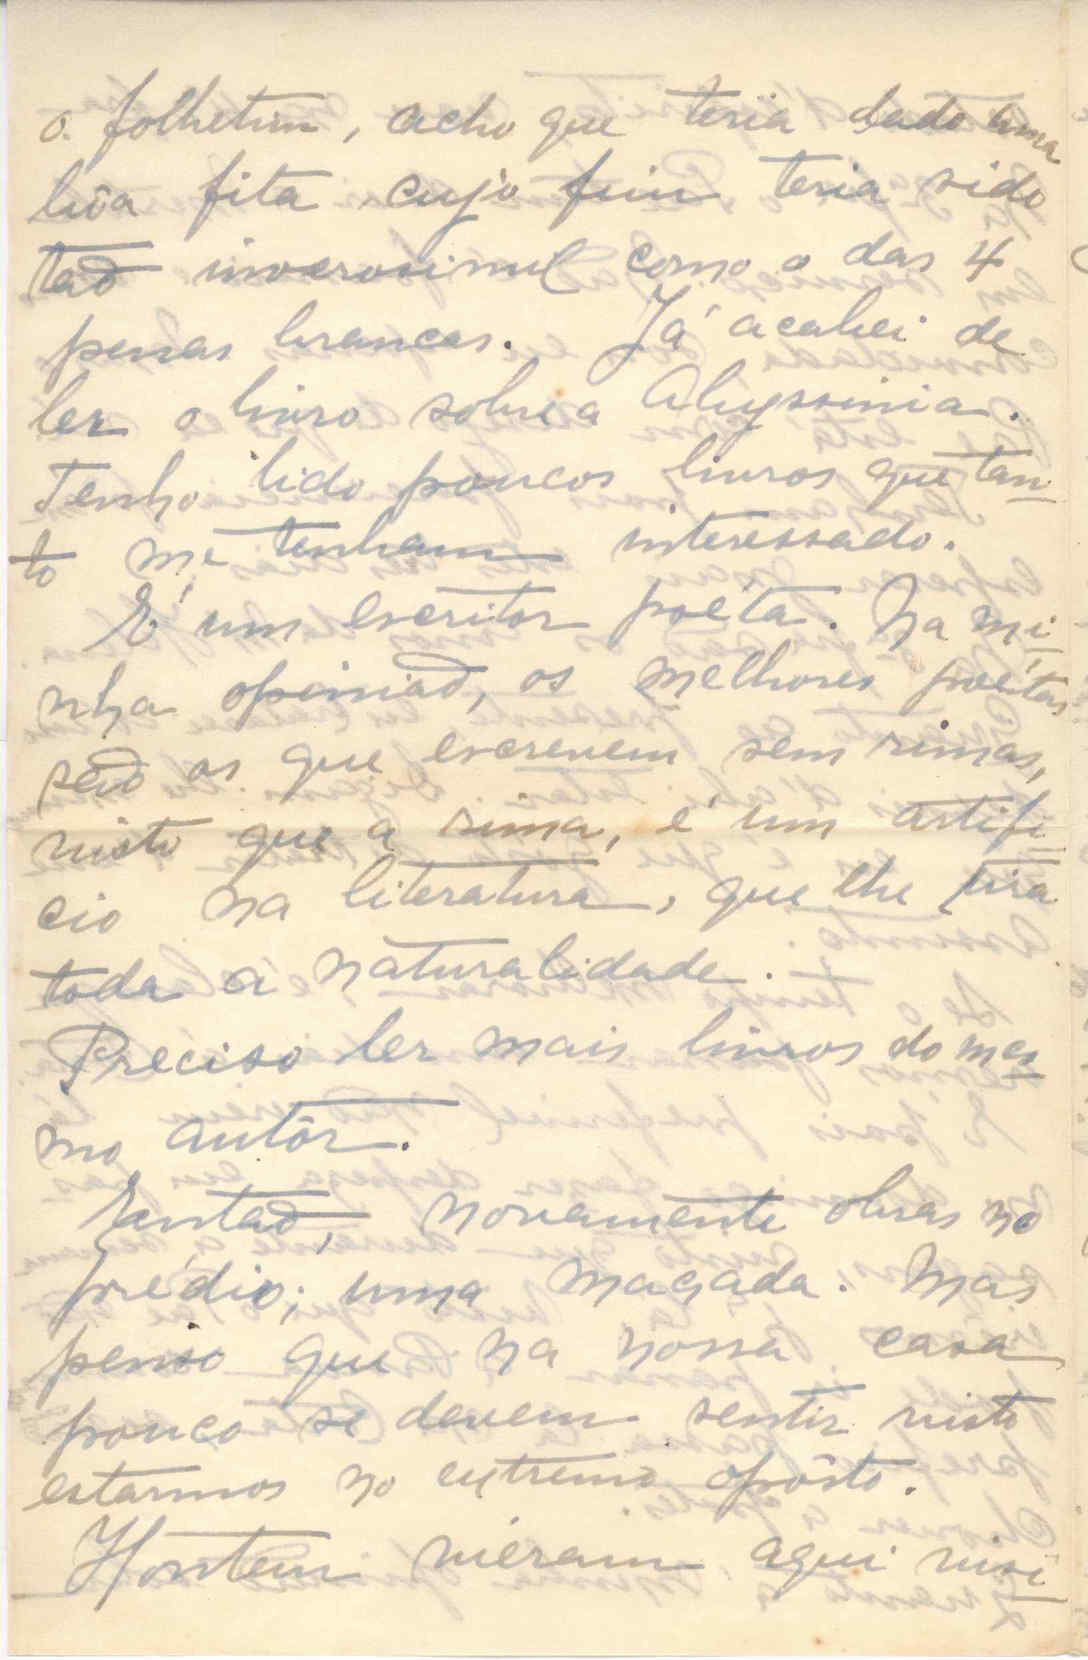 o folhetim, acho que teria dado uma
bôa fita cujo fim teria sido
tão inverosimil como o das 4
penas brancas. Já acabei de
ler o livro sobre a Abyssinia.
Tenho lido poucos livros que tan-
to me tenham interessado.
É um escritor poéta. Na mi-
nha opinião, os melhores poétas
são os que escrevem sem rimas,
visto que a rima, é um artifi-
cio na literatura, que lhe tira
toda a naturalidade.
Preciso ler mais livros do mes-
mo autôr.
Então, novamente obras no
prédio; uma maçada. Mas
penso que na nossa casa
pouco se devem sentir visto
estarmos no extremo opôsto.
Hontem viéram aqui visi-